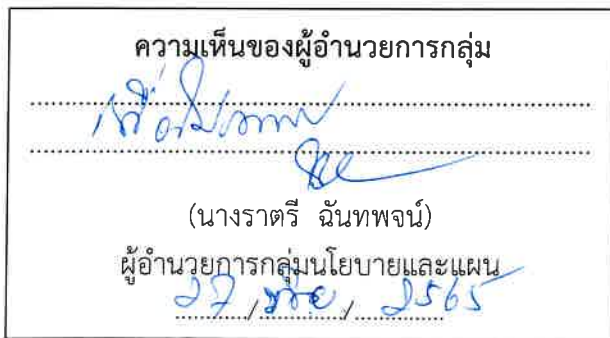 ความเห็นของผู้อำนวยการกลุ่ม
เพื่อโปรดทราบ
(นางราตรี ฉันทพจน์)
ผู้อำนวยการกลุ่มนโยบายและแผน
27 / / 2565